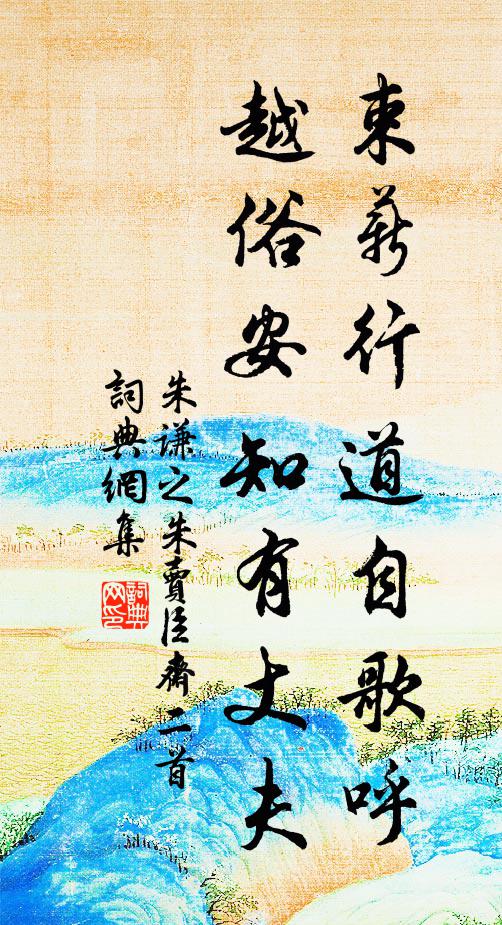 束薪行道自歌呼
越俗安知有丈夫
朱謙之朱賣臣齋二首
詞典網集
詞典
网印